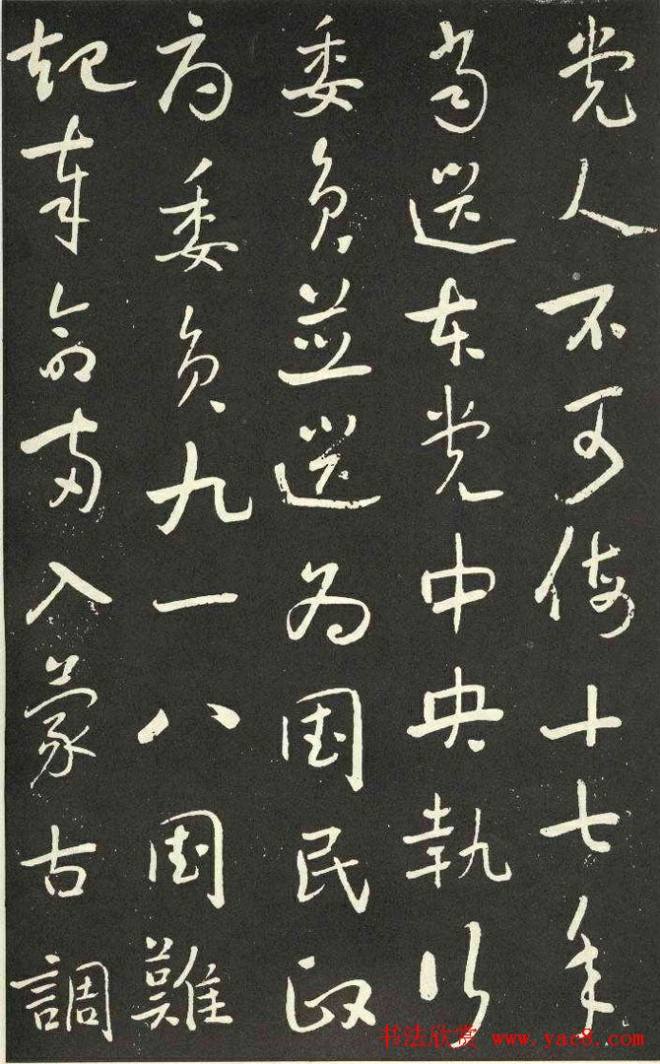 党人不可倚十七年
当选本党中央執行
委員並选为国民政
府委員九一八国難
起奉命两入蒙古調
书法欣赏 www.yac8.com